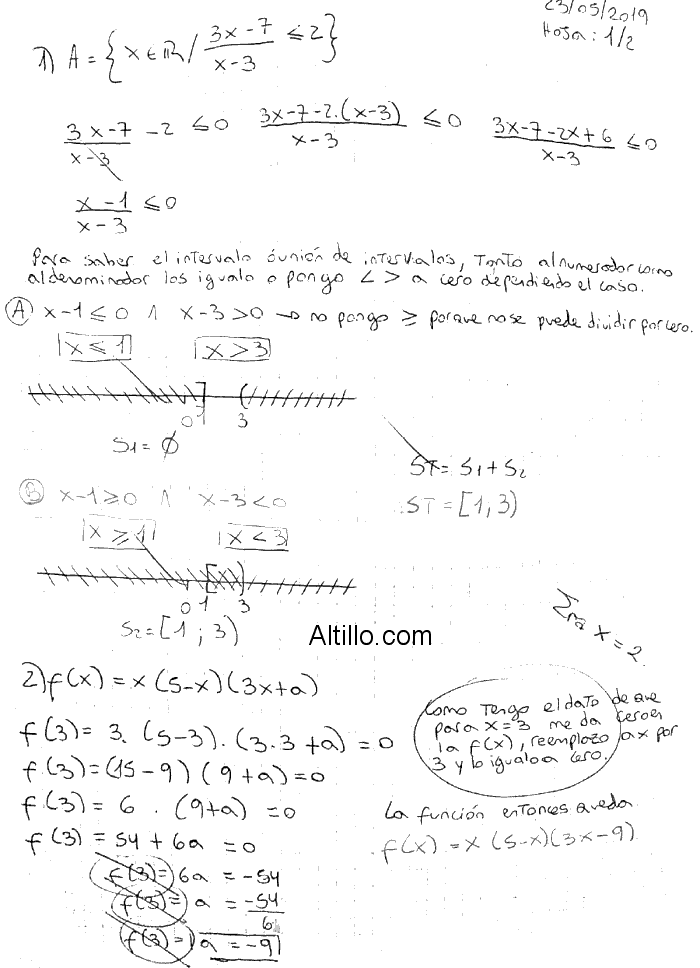 23/05/2019
Hoja: 1/2
1) A = {x ∈ ℝ / (3x-7)/(x-3) ≤ 2}
(3x-7)/(x-3) - 2 ≤ 0   (3x-7-2.(x-3))/(x-3) ≤ 0   (3x-7-2x+6)/(x-3) ≤ 0
(x-1)/(x-3) ≤ 0
Para saber el intervalo ó unión de intervalos, tanto al numerador como
al denominador los igualo o pongo < > a cero dependiendo el caso.
(A) x-1 ≤ 0 ∧ x-3 > 0 → no pongo ≥ porque no se puede dividir por cero.
x ≤ 1   x > 3
0 1 3
S1 = ∅
ST = S1 + S2
ST = [1, 3)
(B) x-1 ≥ 0 ∧ x-3 < 0
x ≥ 1   x < 3
0 1 3
S2 = [1 ; 3)
Altillo.com
x = 2
2) f(x) = x (5-x) (3x+a)
f(3) = 3. (5-3). (3.3+a) = 0
f(3) = (15-9) (9+a) = 0
f(3) = 6 . (9+a) = 0
f(3) = 54 + 6a = 0
f(3) = 6a = -54
f(3) = a = -54/6
f(3) = a = -9
Como tengo el dato de que
para x=3 me da cero en
la f(x), reemplazo a x por
3 y lo igualo a cero.
La función entonces queda
f(x) = x (5-x)(3x-9)